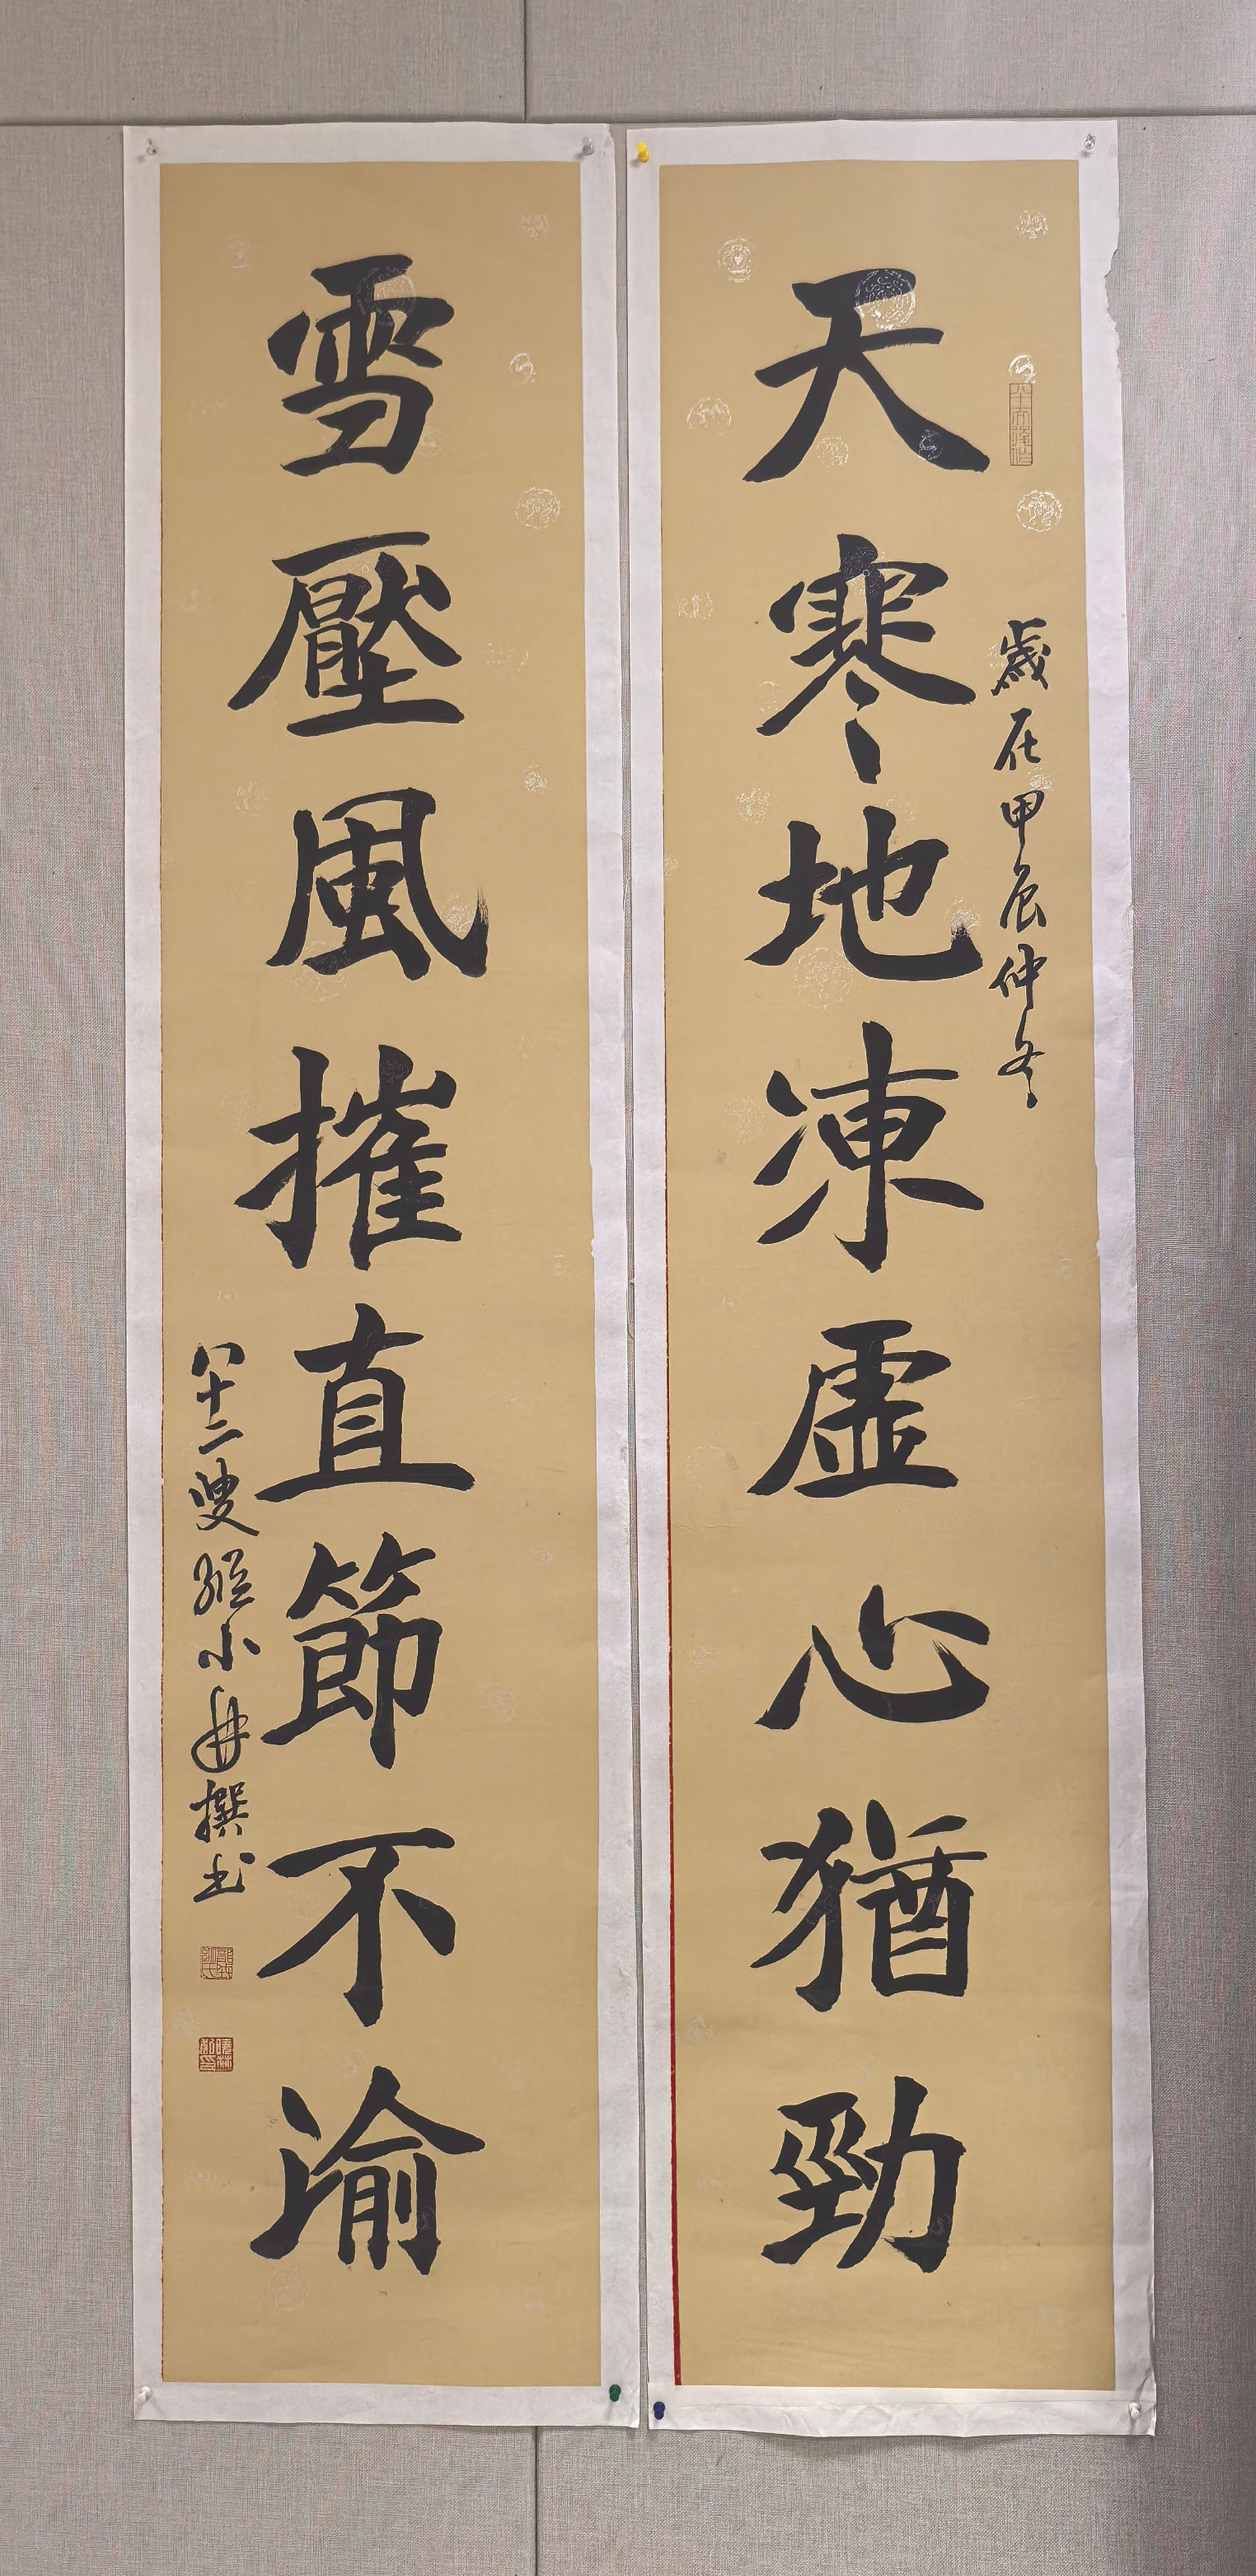 天寒地凍虛心猶勁
歲在甲辰仲冬
雪壓風摧直節不渝
八十二叟 小 撰书